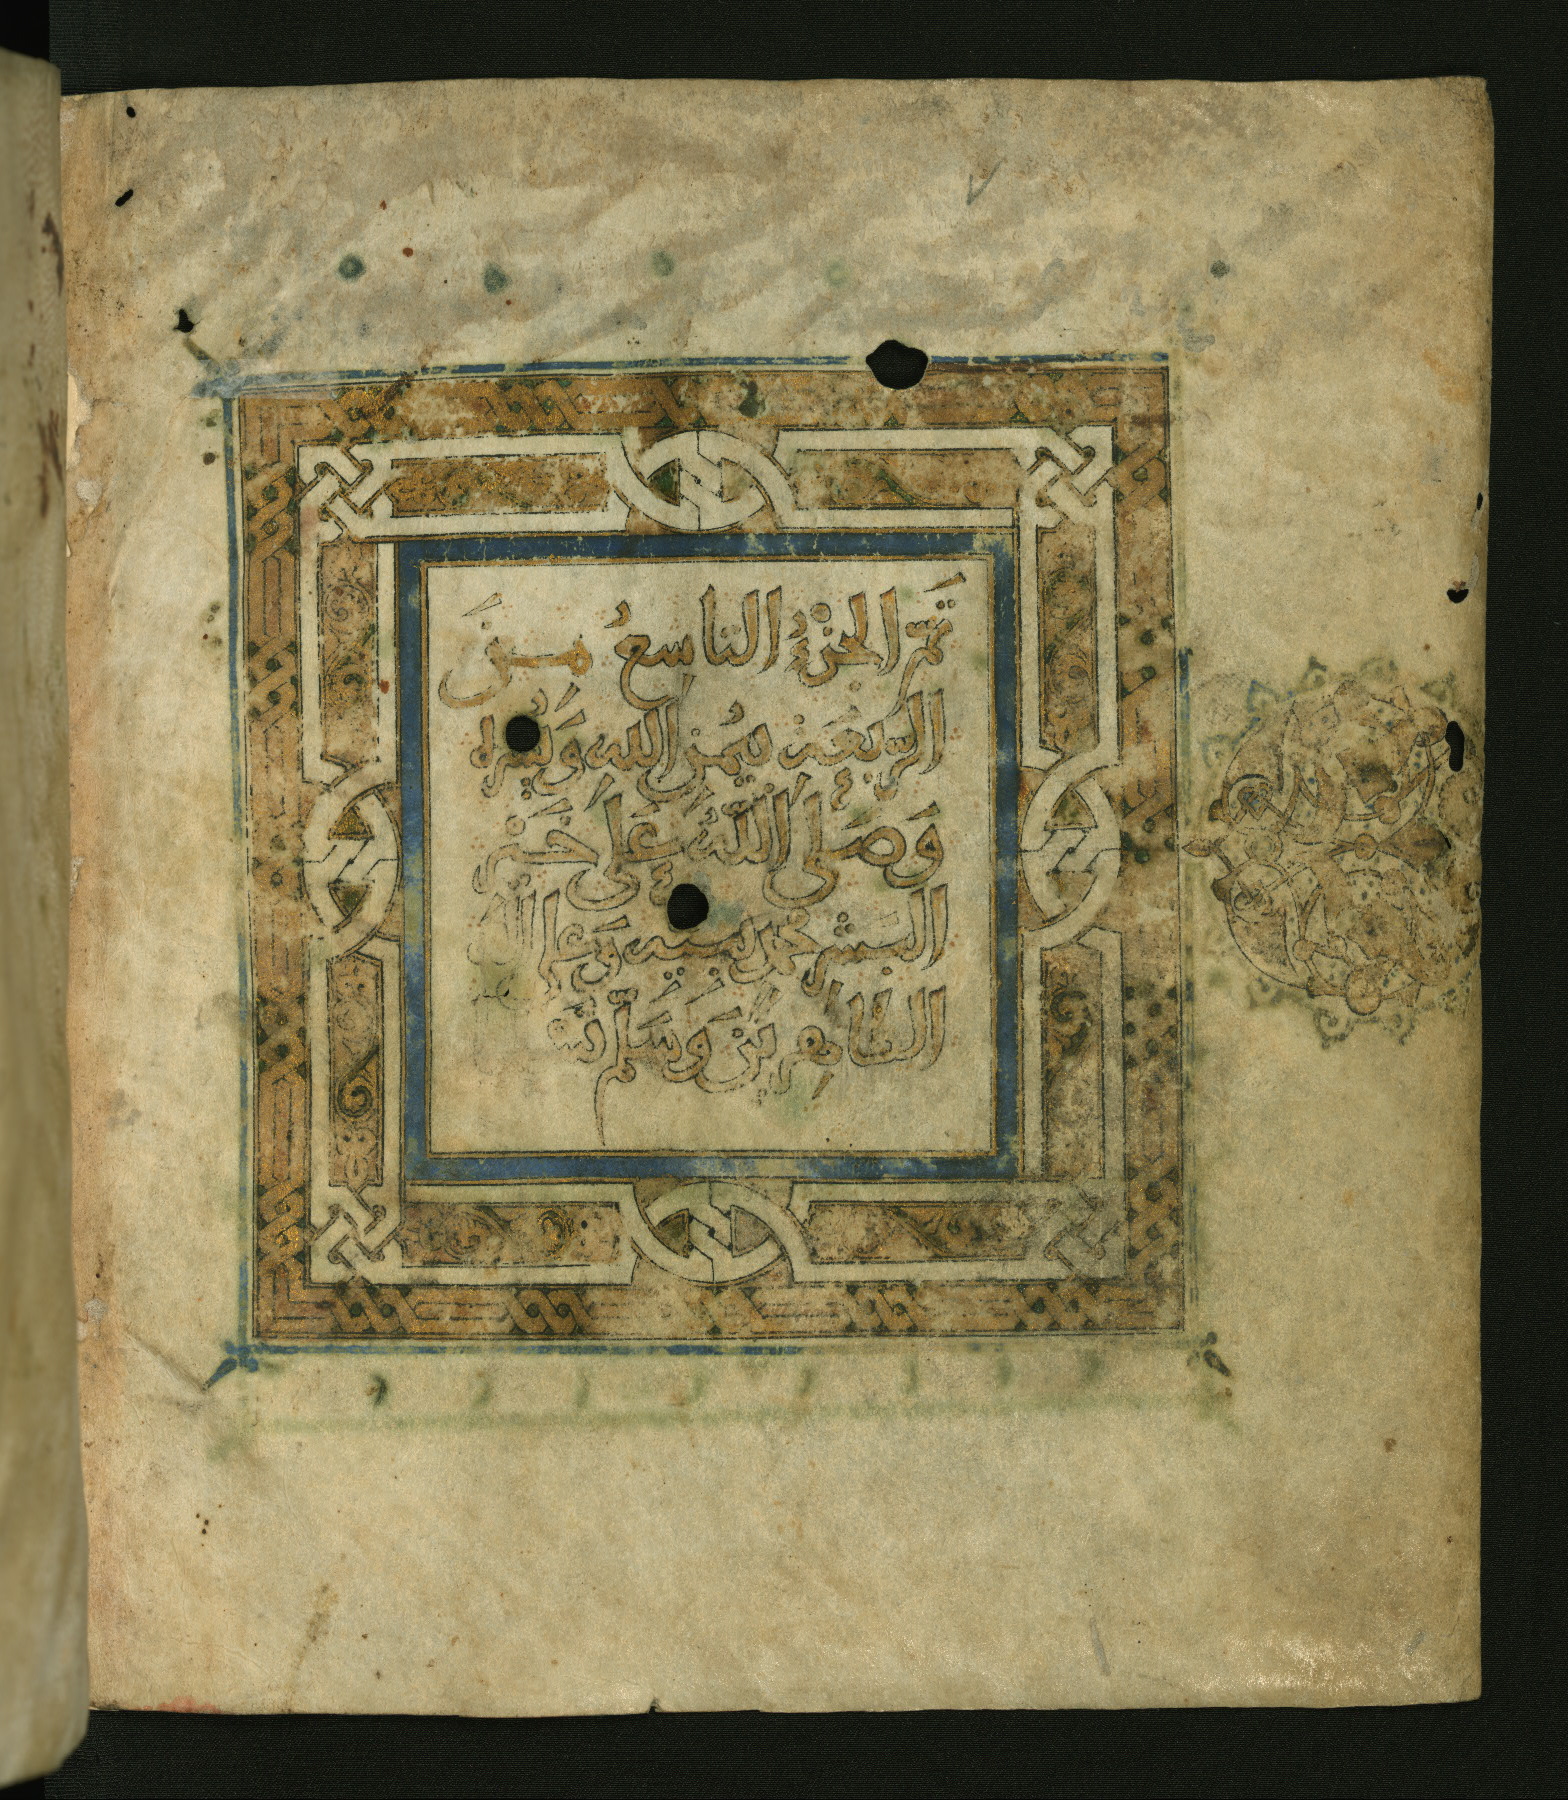 تَمَّ الجُزْءُ التاسعُ مِنَ
الرَّبْعَةِ بيُمْنِ اللهِ وَيُسْرِه
وَصَلَى اللَّهُ عَلَى خَيْرِ
البَشَرِ محمد نبيه وعلى اله
الطاهِرِينَ وَسَلَّمَ